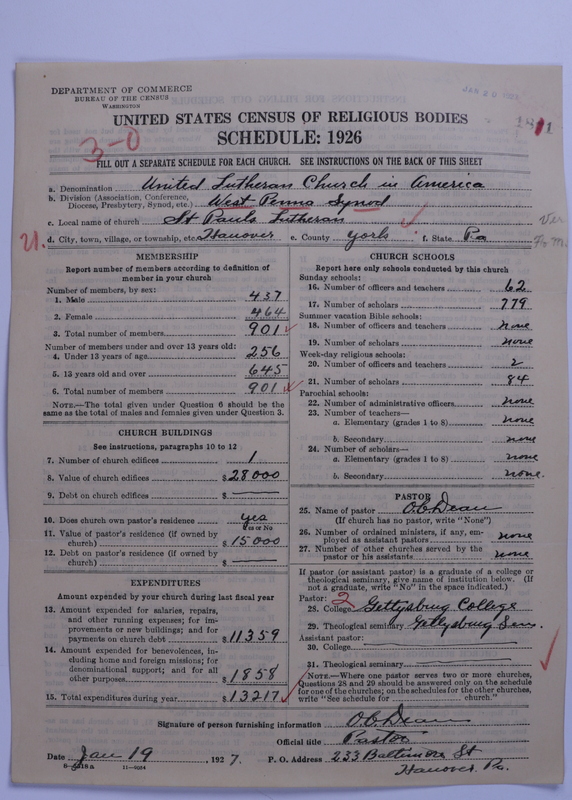 DEPARTMENT OF COMMERCE
BUREAU OF THE CENSUS
WASHINGTON
UNITED STATES CENSUS OF RELIGIOUS BODIES
SCHEDULE: 1926
3-0
FILL OUT A SEPARATE SCHEDULE FOR EACH CHURCH. SEE INSTRUCTIONS ON THE BACK OF THIS SHEET
a. Denomination United Lutheran Church in America
b. Division (Association, Conference, Diocese, Presbytery, Synod, etc.) West Penna Synod
c. Local name of church St Pauls Lutheran
d. City, town, village, or township, etc. Hanover e. County York f. State Pa
MEMBERSHIP
Report number of members according to definition of
member in your church
Number of members, by sex:
1. Male 437
2. Female 464
3. Total number of members 901
Number of members under and over 13 years old:
4. Under 13 years of age 256
5. 13 years old and over 645
6. Total number of members 901
NOTE.—The total given under Question 6 should be the
same as the total of males and females given under Question 3.
CHURCH BUILDINGS
See instructions, paragraphs 10 to 12
7. Number of church edifices 1
8. Value of church edifices $ 28000
9. Debt on church edifices $
10. Does church own pastor's residence yes
Yes or No
11. Value of pastor's residence (if owned by
church) $ 15000
12. Debt on pastor's residence (if owned by
church) $
EXPENDITURES
Amount expended by your church during last fiscal year
13. Amount expended for salaries, repairs,
and other running expenses; for im-
provements or new buildings; and for
payments on church debt $ 11359
14. Amount expended for benevolences, in-
cluding home and foreign missions; for
denominational support; and for all
other purposes $ 1858
15. Total expenditures during year $ 13217
CHURCH SCHOOLS
Report here only schools conducted by this church
Sunday schools:
16. Number of officers and teachers 62
17. Number of scholars 779
Summer vacation Bible schools:
18. Number of officers and teachers none
19. Number of scholars none
Week-day religious schools:
20. Number of officers and teachers 2
21. Number of scholars 84
Parochial schools:
22. Number of administrative officers none
23. Number of teachers—
a. Elementary (grades 1 to 8) none
b. Secondary none
24. Number of scholars—
a. Elementary (grades 1 to 8) none
b. Secondary none.
PASTOR
25. Name of pastor O.C. Dean
(If church has no pastor, write "None")
26. Number of ordained ministers, if any, em-
ployed as assistant pastors none
27. Number of other churches served by the
pastor or his assistants none
If pastor (or assistant pastor) is a graduate of a college or
theological seminary, give name of institution below. (If
not a graduate, write "No" in the space indicated.)
Pastor: 2
28. College Gettysburg College
29. Theological seminary Gettysburg Sem.
Assistant pastor:
30. College
31. Theological seminary
NOTE.—Where one pastor serves two or more churches,
Questions 28 and 29 should be answered only on the schedule
for one of the churches; on the schedules for the other churches,
write "See schedule for church."
Signature of person furnishing information O.C. Dean
Official title Pastor
Date Jan 19, 1927. P. O. Address 233 Baltimore St
Hanover Pa.
11—9084